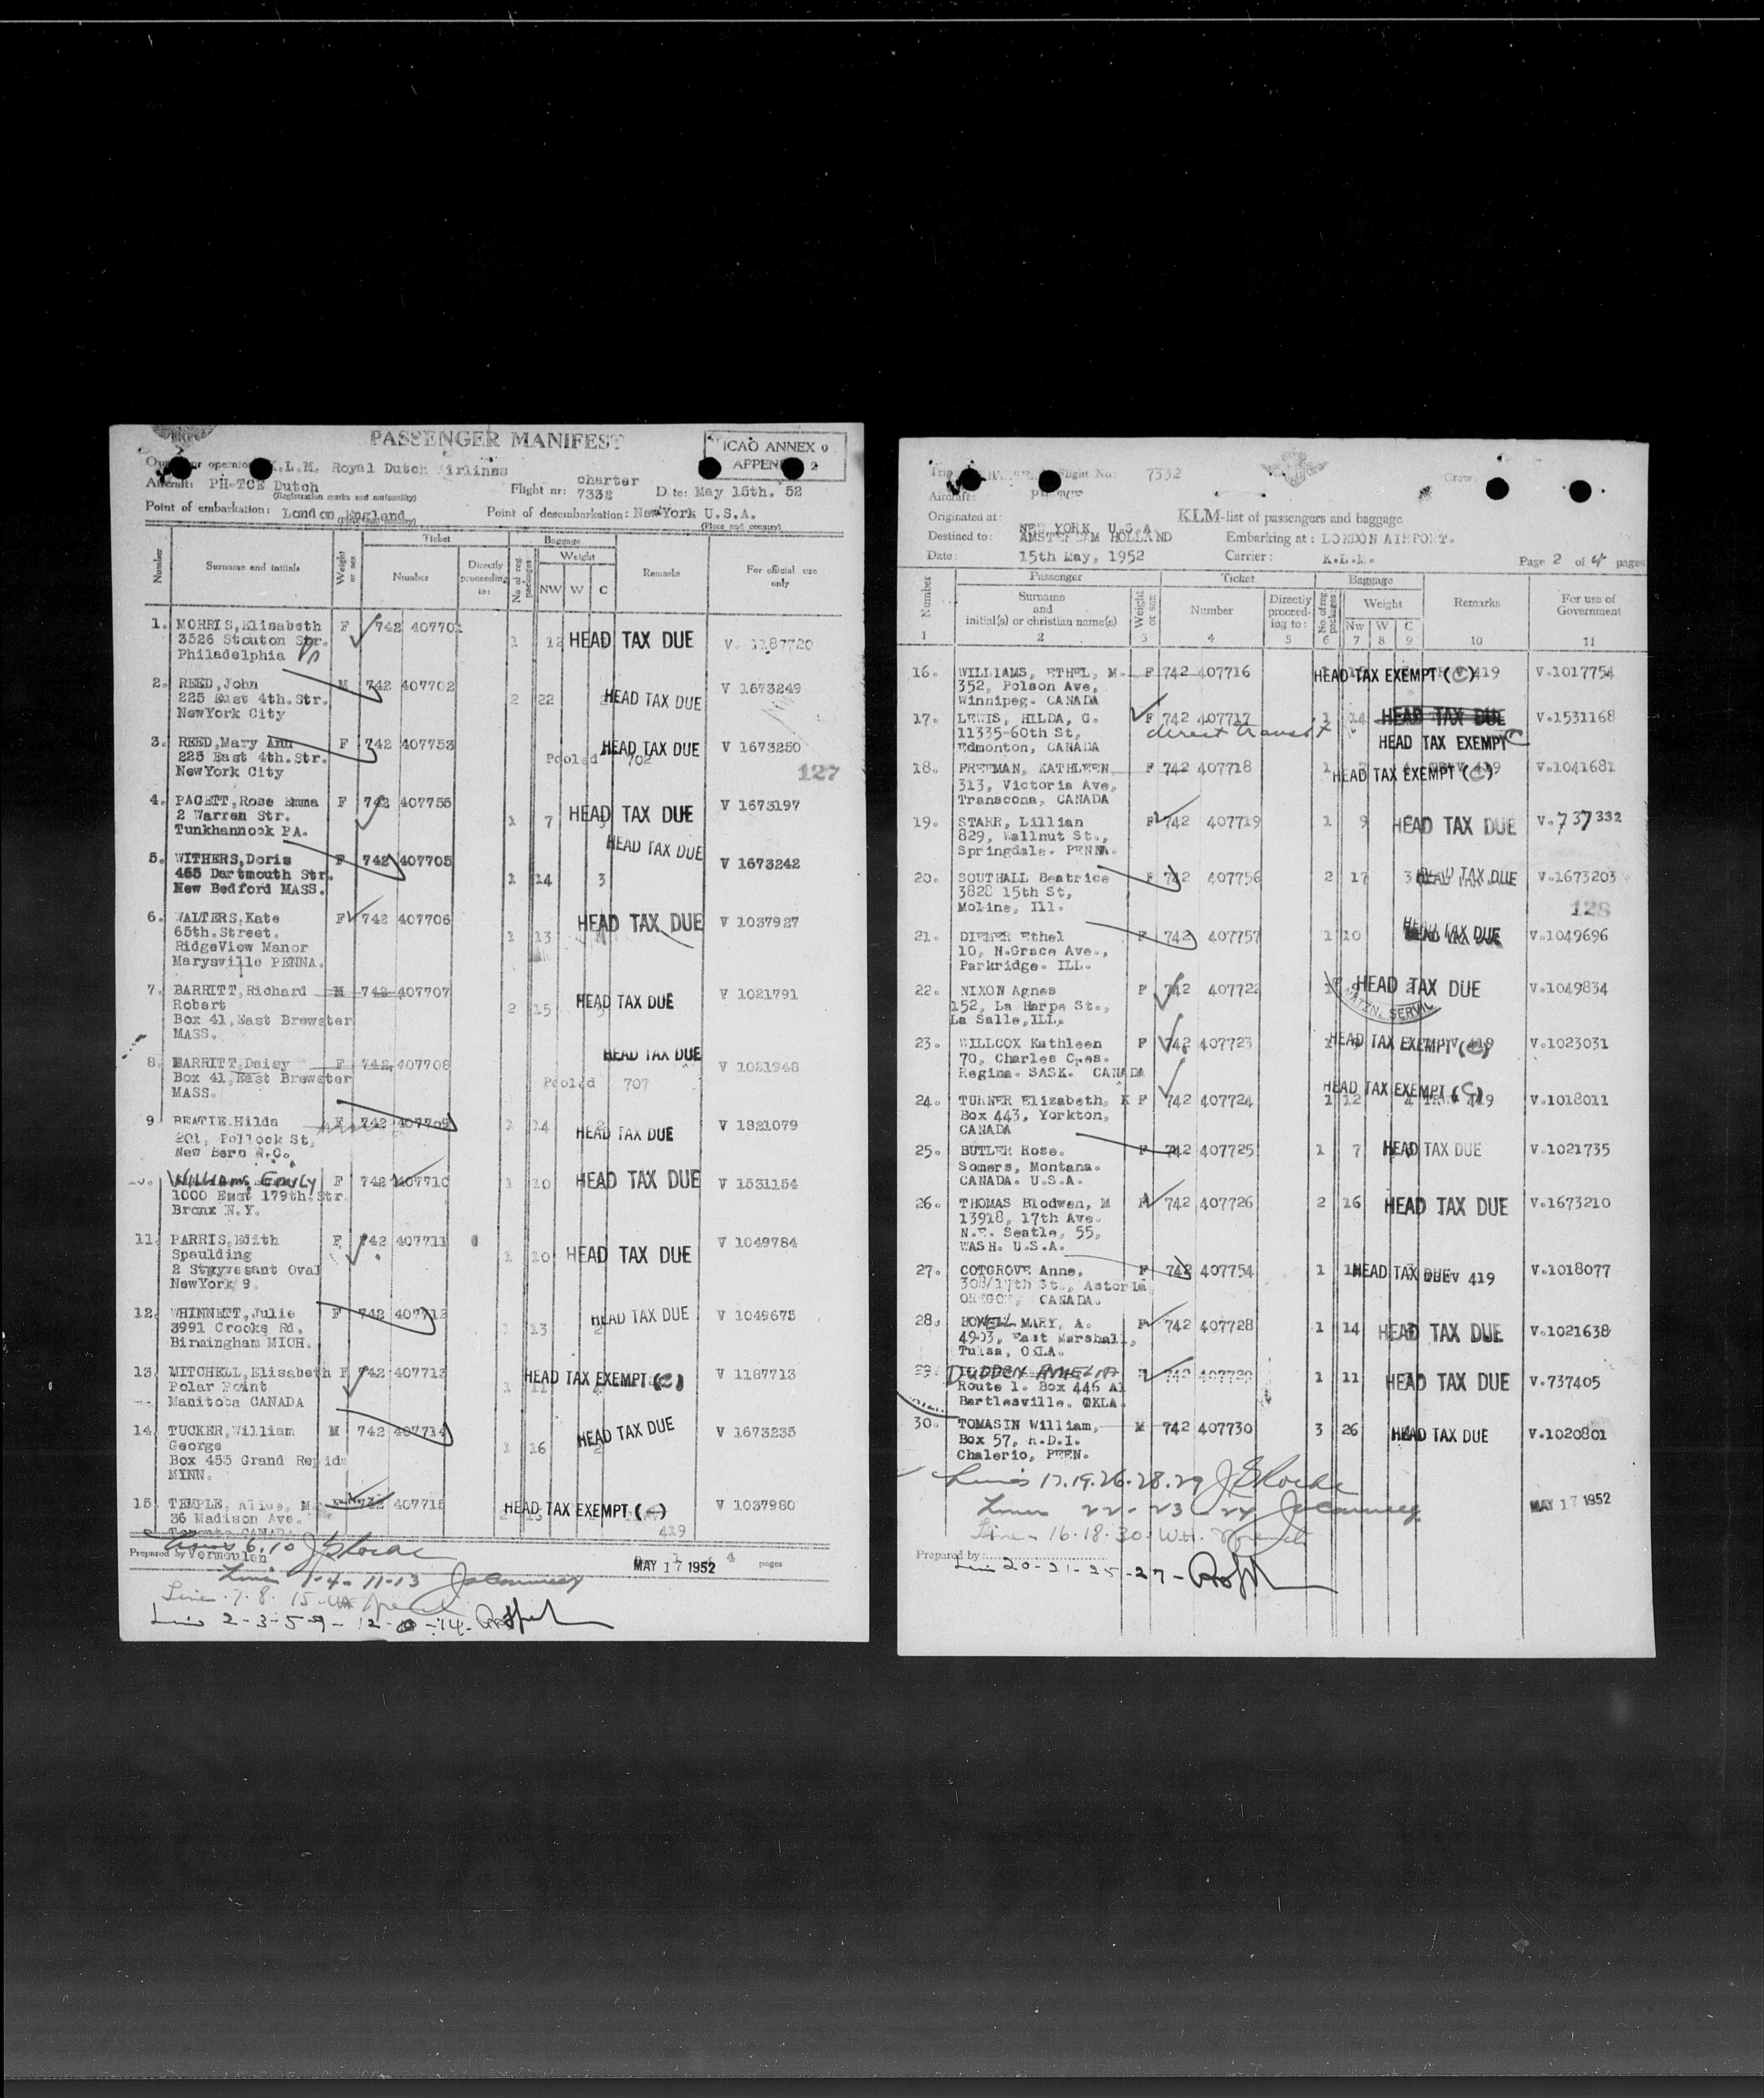 PASSENGER MANIFEST
ICAO ANNEX 9
APPENDIX 2
K.L.M. Royal Dutch Airlines
Aircraft: PH-TCE Dutch
(Registration marks and nationality)
charter
Flight nr: 7332 Date: May 15th. 52
Point of embarkation: London England
(Place and country)
Point of desembarkation: NewYork U.S.A.
(Place and country)
Number
Surname and initials
Weight or sex
Ticket
Number
Directly proceeding to:
Baggage
No of reg. packages
Weight
NW W C
Remarks
For official use only
1. MORRIS, Elisabeth F 742 407701
3526 Stouton Str. 1 12 HEAD TAX DUE V. 1187720
Philadelphia
2. REED, John M 742 407702 V 1673249
225 East 4th. Str. 2 22 HEAD TAX DUE
NewYork City
3. REED, Mary Ann F 742 407753 HEAD TAX DUE V 1673250
225 East 4th. Str. Pooled 702
NewYork City
127
4. PAGETT, Rose Emma F 742 407755 V 1673197
2 Warren Str. 1 7 HEAD TAX DUE
Tunkhannook PA.
HEAD TAX DUE
5. WITHERS, Doris F 742 407705 V 1673242
465 Dartmouth Str. 1 14 3
New Bedford MASS.
6. WALTERS, Kate F 742 407706 HEAD TAX DUE V 1037927
65th. Street. 1 13
RidgeView Manor
Marysville PENNA.
7. BARRITT, Richard M 742 407707 HEAD TAX DUE V 1021791
Robert 2 15
Box 41, East Brewster
MASS.
HEAD TAX DUE
8. BARRITT, Daisy F 742 407708 V 1021948
Box 41, East Brewster Pooled 707
MASS.
9 BEATIE, Hilda F 742 407709 14 HEAD TAX DUE V 1821079
201, Pollock St,
New Bern N.C.
WILLIAMS, EMILY F 742 407710 1 10 HEAD TAX DUE V 1531154
1000 East 179th. Str.
Bronx N.Y.
11. PARRIS, Edith F 742 407711 V 1049784
Spaulding 1 10 HEAD TAX DUE
2 Stuyvesant Oval
NewYork 9.
12. WHINNETT, Julie F 742 407712 HEAD TAX DUE V 1049675
3991 Crooks Rd. 13 2
Birmingham MICH.
13. MITCHELL, Elisabeth F 742 407713 HEAD TAX EXEMPT (C) V 1187713
Polar Point 1 11
Manitoba CANADA
14. TUCKER, William M 742 407714 HEAD TAX DUE V 1673235
George 16 2
Box 455 Grand Rapids
MINN.
15. TEMPLE, Alice, M. F 742 407715 HEAD TAX EXEMPT V 1037980
36 Madison Ave.
Toronto CANADA 419
Lines 6.10
Prepared by Vermeulen
MAY 17 1952 4 pages
Lines 1-4-11-13
Line 7. 8. 15
Lines 2-3-5-9-12-14-
Flight No: 7332
Crew:
Aircraft: PH-TCE
Originated at: NEW YORK, U.S.A.
KLM-list of passengers and baggage
Destined to: AMSTERDAM HOLLAND Embarking at: LONDON AIRPORT.
Date: 15th May, 1952 Carrier: K.L.M. Page 2 of 4 pages
Number
Passenger
Surname and initial(s) or christian name(s)
Weight or sex
Ticket
Number
Directly proceeding to:
Baggage
No. of reg. packages
Weight
Nw W C
Remarks
For use of Government
1 2 3 4 5 6 7 8 9 10 11
16. WILLIAMS, ETHEL, M. F 742 407716 HEAD TAX EXEMPT (C) 419 V.1017754
352, Polson Ave,
Winnipeg. CANADA
17. LEWIS, HILDA, G. F 742 407717 1 14 HEAD TAX DUE V.1531168
11335-60th St, direct transit
Edmonton, CANADA HEAD TAX EXEMPT C
18. FREEMAN, KATHLEEN F 742 407718 1 HEAD TAX EXEMPT (C) 419 V.1041681
313, Victoria Ave,
Transcona, CANADA
19. STARR, Lillian F 742 407719 1 9 HEAD TAX DUE V.737332
829, Wallnut St.,
Springdale. PENNA.
20. SOUTHALL Beatrice F 742 407756 2 17 3 HEAD TAX DUE V.1673203
3828 15th St,
Moline, Ill.
128
21. DIEMER Ethel F 742 407757 1 10 HEAD TAX DUE V.1049696
10, N.Grace Ave.,
Parkridge. ILL.
22. NIXON Agnes F 742 407722 HEAD TAX DUE V.1049834
152, La Harpe St.,
La Salle, ILL.
23. WILLCOX Kathleen F 742 407723 HEAD TAX EXEMPT (C) 419 V.1023031
70, Charles Cres.
Regina. SASK. CANADA
HEAD TAX EXEMPT (C)
24. TURNER Elizabeth, K F 742 407724 1 12 4 419 V.1018011
Box 443, Yorkton,
CANADA
25. BUTLER Rose. F 742 407725 1 7 HEAD TAX DUE V.1021735
Somers, Montana.
CANADA. U.S.A.
26. THOMAS Blodwen, M F 742 407726 2 16 HEAD TAX DUE V.1673210
13918, 17th Ave.
N.E. Seatle, 55,
WASH. U.S.A.
27. COTGROVE Anne. F 742 407754 1 HEAD TAX DUE 419 V.1018077
308/17th St., Astoria
OREGON, CANADA.
28. HOWELL MARY, A. F 742 407728 1 14 HEAD TAX DUE V.1021638
4903, East Marshall,
Tulsa, OKLA.
29. DUDDEN AMELIA F 742 407729 1 11 HEAD TAX DUE V.737405
Route 1. Box 446 A1
Bartlesville. OKLA.
30. TOMASIN William, M 742 407730 3 26 HEAD TAX DUE V.1020801
Box 57, R.D.I.
Chalerio, PEEN.
Lines 17.19.26.28.29
Lines 22-23-24
MAY 17 1952
Line - 16.18.30. W.H.
Prepared by:
Lines 20-21-25-27-